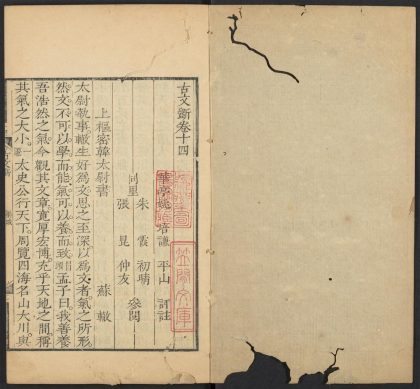 古文斲卷十四
華亭姚培謙 平山 評註
同里
朱 霞 初晴
張 昆 仲友
參閱
上樞密韓太尉書
蘇轍
太尉執事轍生好爲文思之至深以爲文者氣之所形
然文不可以學而能氣可以養而致孟子曰我善養
吾浩然之氣今觀其文章寬厚宏博充乎天地之間稱
其氣之大小太史公行天下周覽四海名山大川與
笠閣文庫